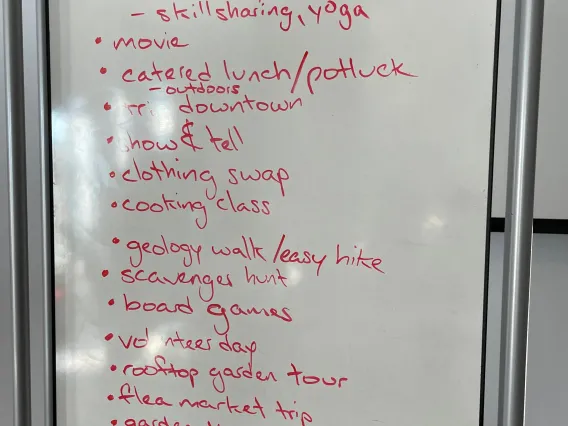 - skillsharing, yoga
• movie
• catered lunch/potluck
- outdoors
• downtown
• how & tell
• clothing swap
• cooking class
• geology walk/easy hike
• scavenger hunt
• board games
• volunteer day
• rooftop garden tour
• flea market trip
• garden